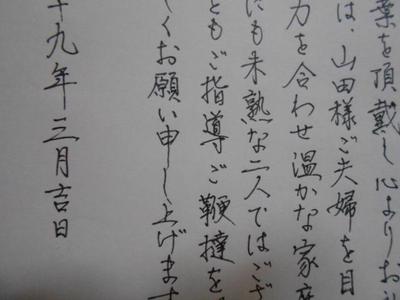 葉を頂戴し心よりお
は、山田様ご夫婦を目
力を合わせ温かな家庭
にも未熟な二人ではござ
ともご指導ご鞭撻を
しくお願い申し上げます
十九年三月吉日